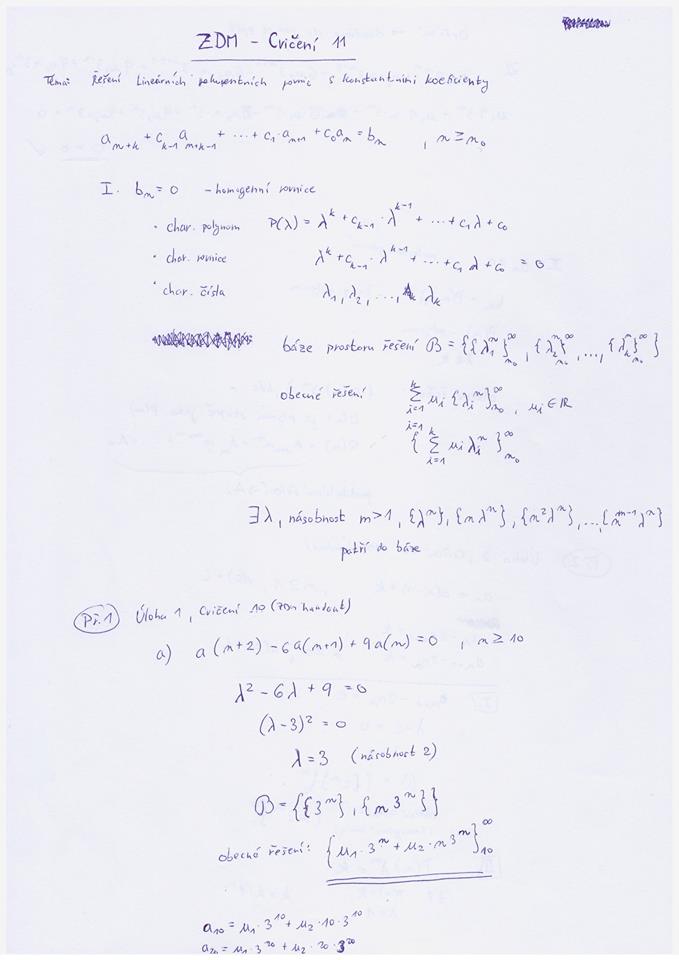 ZDM - Cvičení 11
Téma: Řešení lineárních rekurentních rovnic s konstantními koeficienty
a_{n+k} + c_{k-1} a_{n+k-1} + ... + c_1 · a_{n+1} + c_0 a_n = b_n , n ≥ n_0
I. b_n = 0 - homogenní rovnice
· char. polynom P(λ) = λ^k + c_{k-1} · λ^{k-1} + ... + c_1 λ + c_0
· char. rovnice λ^k + c_{k-1} · λ^{k-1} + ... + c_1 λ + c_0 = 0
· char. čísla λ_1, λ_2, ..., λ_k
báze prostoru řešení B = {{λ_1^n}_{n_0}^∞, {λ_2^n}_{n_0}^∞, ..., {λ_k^n}_{n_0}^∞}
obecné řešení ∑_{i=1}^k μ_i {λ_i^n}_{n_0}^∞ , μ_i ∈ R
{∑_{i=1}^k μ_i λ_i^n}_{n_0}^∞
∃ λ, násobnost m > 1, {λ^n}, {n λ^n}, {n^2 λ^n}, ... {n^{m-1} λ^n}
patří do báze
Př.1 Úloha 1, Cvičení 10 (Zom handout)
a) a(n+2) - 6a(n+1) + 9a(n) = 0 , n ≥ 10
λ^2 - 6λ + 9 = 0
(λ - 3)^2 = 0
λ = 3 (násobnost 2)
B = {{3^n}, {n 3^n}}
obecné řešení: {μ_1 · 3^n + μ_2 · n 3^n}_{10}^∞
a_{10} = μ_1 · 3^{10} + μ_2 · 10 · 3^{10}
a_{20} = μ_1 · 3^{20} + μ_2 · 20 · 3^{20}